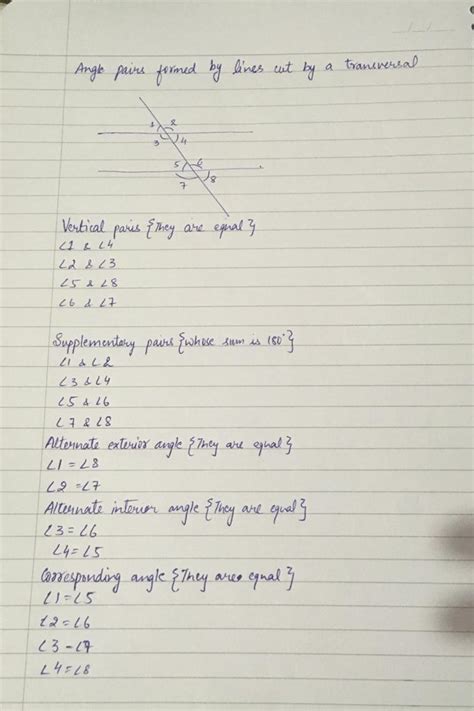 Angle pairs formed by lines cut by a transversal
1 2
3 4
5 6
7 8
Vertical paris {They are equal}
∠1 & ∠4
∠2 & ∠3
∠5 & ∠8
∠6 & ∠7
Supplementary pairs {whose sum is 180°}
∠1 & ∠2
∠3 & ∠4
∠5 & ∠6
∠7 & ∠8
Alternate exterior angle {They are equal}
∠1 = ∠8
∠2 = ∠7
Alternate interior angle {They are equal}
∠3 = ∠6
∠4 = ∠5
Corresponding angle {They are equal}
∠1 = ∠5
∠2 = ∠6
∠3 - ∠7
∠4 = ∠8